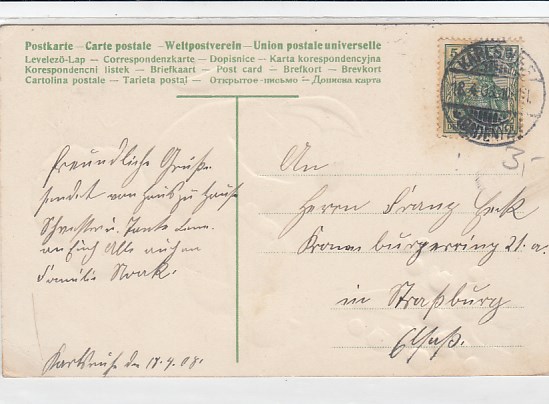 Postkarte – Carte postale – Weltpostverein – Union postale universelle
Levelező-Lap — Correspondenzkarte — Dopisnice — Karta korespondencyjna
Korespondencni listek — Briefkaart — Post card — Brefkort — Brevkort
Cartolina postal — Tarjeta postal — Открытое письмо — Дописна карта
5
KARLSRUHE
3,-
Freundliche Grüße
sendet von Haus zu Haus
Schwester u. Tante
an Euch Alle auch an
Familie Noak.
Karlsruhe den 18.4.08.
An
Herrn Franz Heck
Kronenburgerring 21.a.
in Straßburg
Elsaß.